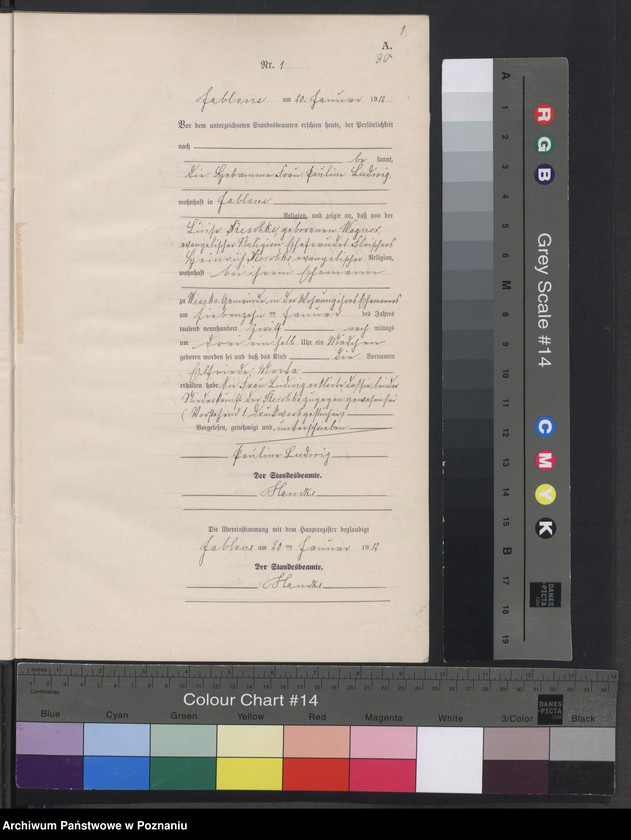 1
A.
30
Nr. 1
Jablone am 20. Januar 1912
Vor dem unterzeichneten Standesbeamten erschien heute, der Persönlichkeit
nach
be kannt,
die Hebamme Frau Pauline Ludwig,
wohnhaft in Jablone
Religion, und zeigte an, daß von der
Luise Keschke geborenen Wagner,
evangelischer Religion Ehefrau des
Heinrich Keschke evangelischer Religion,
wohnhaft bei ihrem Ehemann
zu Gemeinde, in der Wohnung ihres Ehemannes
am siebenzehn ten Januar des Jahres
tausend neunhundert zwölf nach mittags
um drei ein halb Uhr ein Mädchen
geboren worden sei und daß das Kind die Vornamen
Elfriede Marta
erhalten habe. Die Frau Ludwig erklärte, daß sie bei der
Niederkunft der Keschke zugegen gewesen sei
(Vorstehend 1 Druckwort gestrichen)
Vorgelesen, genehmigt und unterschrieben
Pauline Ludwig
Der Standesbeamte.
Die Übereinstimmung mit dem Hauptregister beglaubigt
Jablone am 20 ten Januar 1912
Der Standesbeamte.
A 1 2 3 4 5 6 M 8 9 10 11 12 13 14 15 B 17 18 19
R G B
Grey Scale #14
C M Y K
DANES-PICTA.COM
inches
Centimetres
Colour Chart #14
DANES-PICTA.COM
Blue Cyan Green Yellow Red Magenta White 3/Color Black
Archiwum Państwowe w Poznaniu